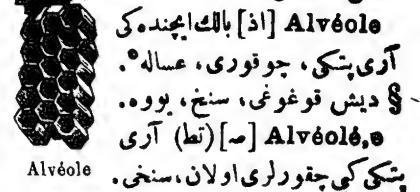 Alvéole [اذ] بالك ايچنده كی
آری پتكی، چوقوری، عساله.
§ ديش قوغوغی، سنخ، يووه.
Alvéolé,e [صـ] (تط) آری
پتكی كبی چقورلری اولان، سنخی.
Alvéole